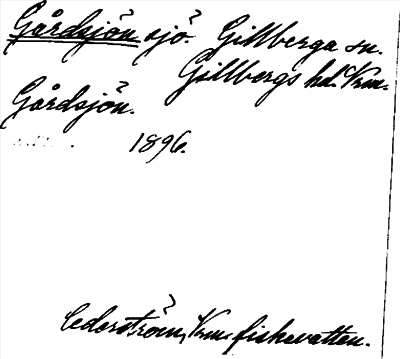 Gårdsjön sjö. Gillberga sn.
Gillbergs hd. Vrm.
Gårdsjön.
1896.
Cederström, Vrm. fiskevatten.